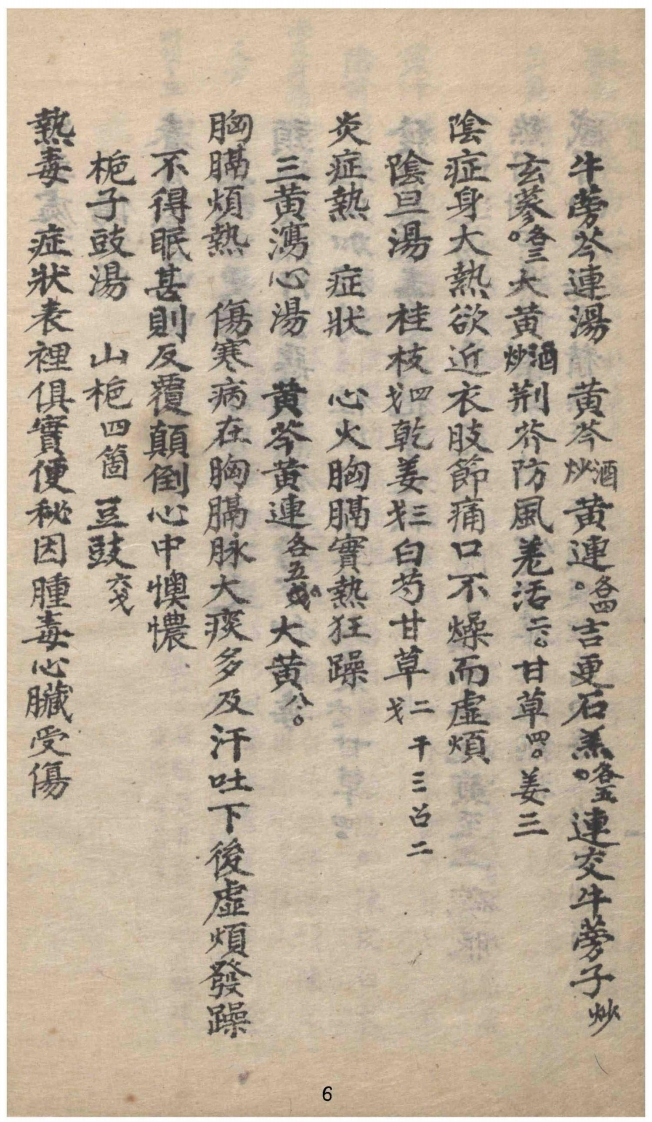 牛蒡芩連湯 黄芩酒炒黄連各四吉更石羔各五連交牛蒡子炒
玄蔘各三大黄酒炒荆芥防風羌活二甘草四姜三
陰症身大熱欲近衣肢節痛口不燥而虛煩
陰旦湯 桂枝四戈乾姜三戈白芍甘草二戈 干三召二
炎症熱 症狀 心火胸膈實熱狂躁
三黄瀉心湯 黄芩黄連各五戈大黄八
胸膈煩熱 傷寒病在胸膈脉大痰多及汗吐下後虛煩發躁
不得眠甚則反覆顛倒心中懊憹
梔子豉湯 山梔四箇豆豉六戈
熱毒 症狀表裡俱實便秘因腫毒心臟受傷
6